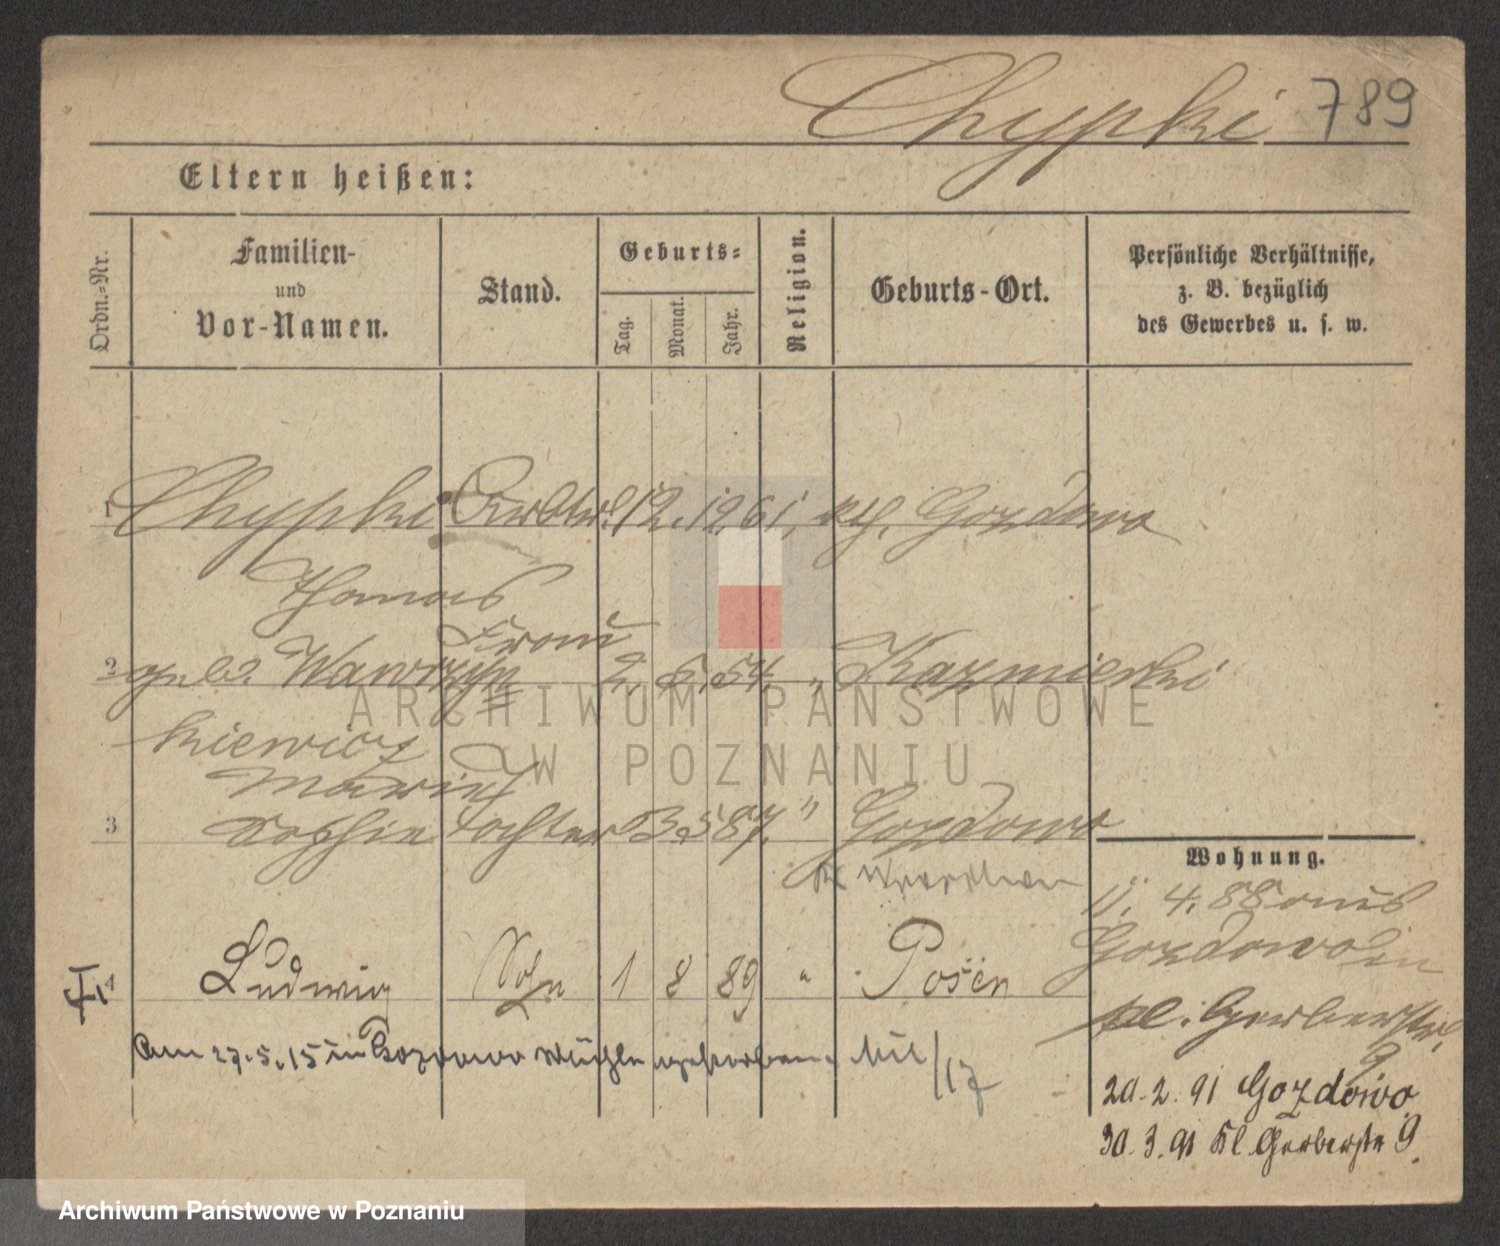 Chypki 789
Eltern heißen:
Ordn.-Nr.
Familien-
und
Vor-Namen.
Stand.
Geburts-
Tag.
Monat.
Jahr.
Religion.
Geburts-Ort.
Persönliche Verhältnisse,
z. B. bezüglich
des Gewerbes u. s. w.
1 Chypki 12. 12 61, kth. Gozdowo
Thomas
Frau
2 geb. Wawrzyn 2. 5. 54. " Kazmierki
kiewicz
Marie
3 Sophie Tochter 3. 5 87. " Gozdowo
Kr Wreschen
Wohnung.
11. 4. 88 aus
Gozdowo in
Kl. Gerberstr.
9
4 Ludwig Sohn 1 8 89 " Posen
Am 27.5.15 in Gozdowo Mühle gestorben.
20.2.91 Gozdowo
30.3.91 Kl Gerberstr 9.
ARCHIWUM PAŃSTWOWE
W POZNANIU
Archiwum Państwowe w Poznaniu